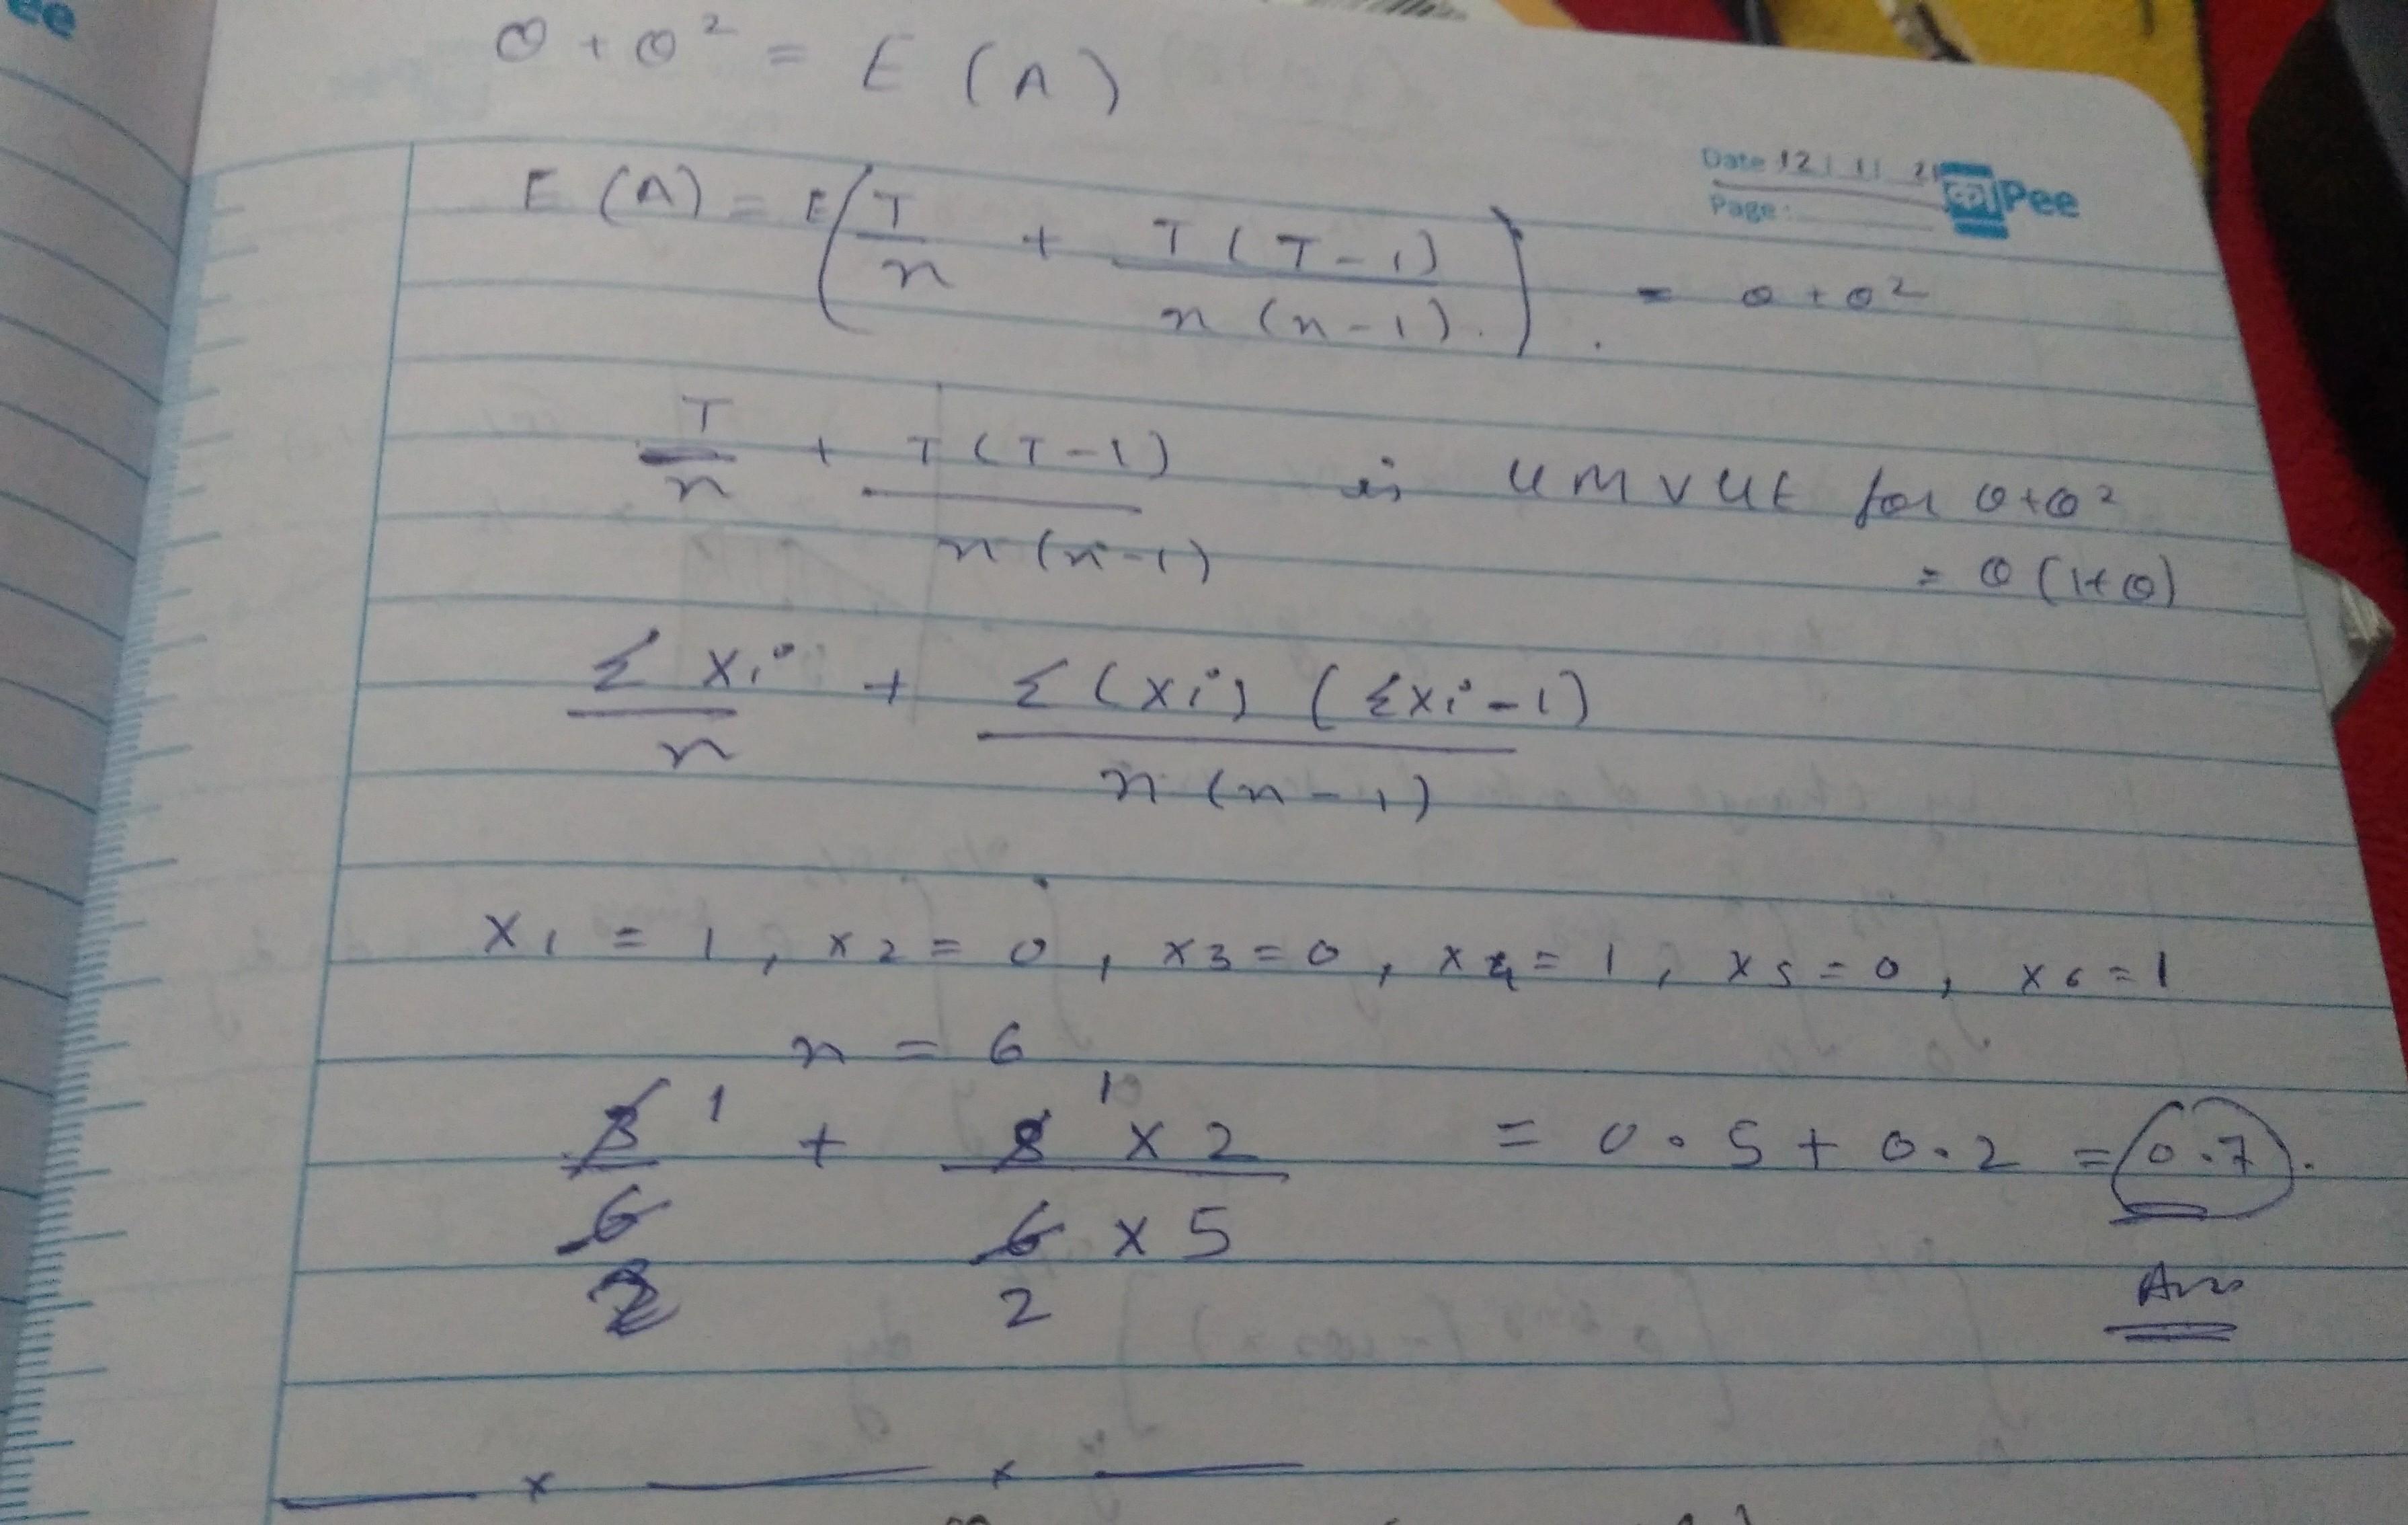 ee
θ + θ² = E (A)
Date 12 | 11 21 Pee
Page:
E (A) = E(T/n + T(T-1)/n(n-1).). = θ+θ²
T/n + T(T-1)/n(n-1) is UMVUE for θ+θ²
= θ(1+θ)
Σxi/n + Σ(xi)(Σxi-1)/n(n-1)
x1 = 1, x2 = 0, x3 = 0, x4 = 1, x5 = 0, x6 = 1
n = 6
3 1/6 2 + 3 1 x 2/6 2 x 5 = 0.5 + 0.2 = 0.7.
Ans